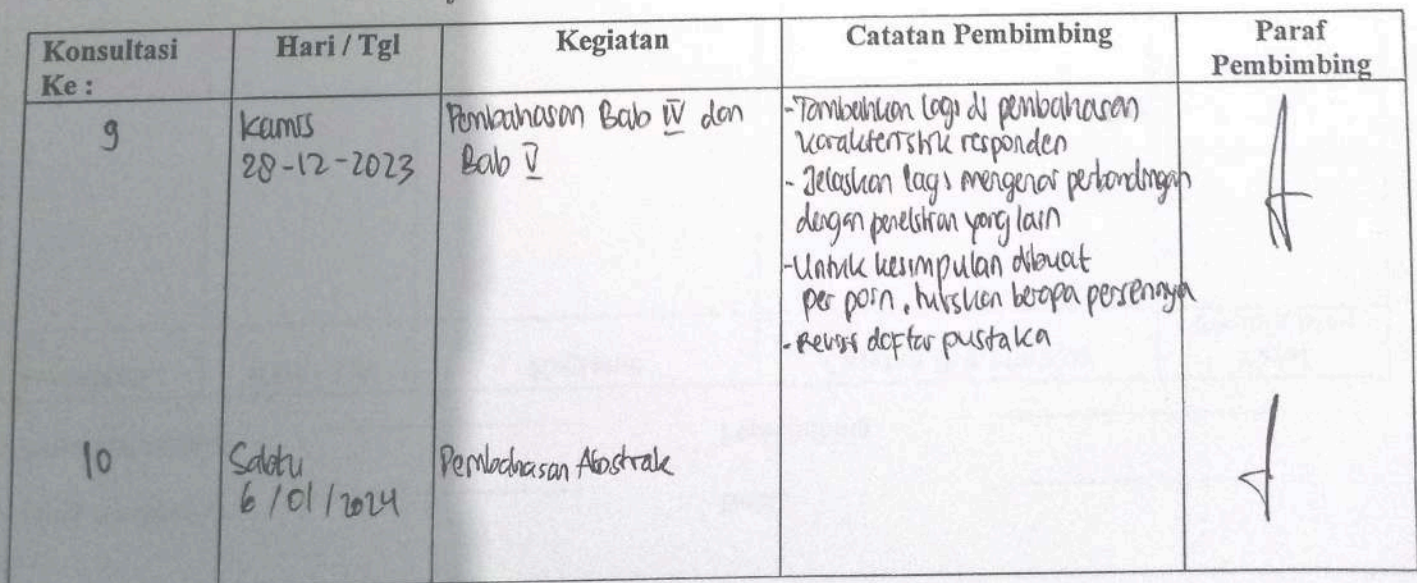 Konsultasi Ke :
Hari / Tgl
Kegiatan
Catatan Pembimbing
Paraf Pembimbing
9
Kamis
28-12-2023
Pembahasan Bab IV dan
Bab V
- Tambahkan lagi di pembahasan
karakteristik responden
- Jelaskan lagi mengenai perbandingan
dengan penelitian yang lain
- Untuk kesimpulan dibuat
per poin, tuliskan berapa persennya
- Revisi daftar pustaka
10
Sabtu
6/01/2024
Pembahasan Abstrak